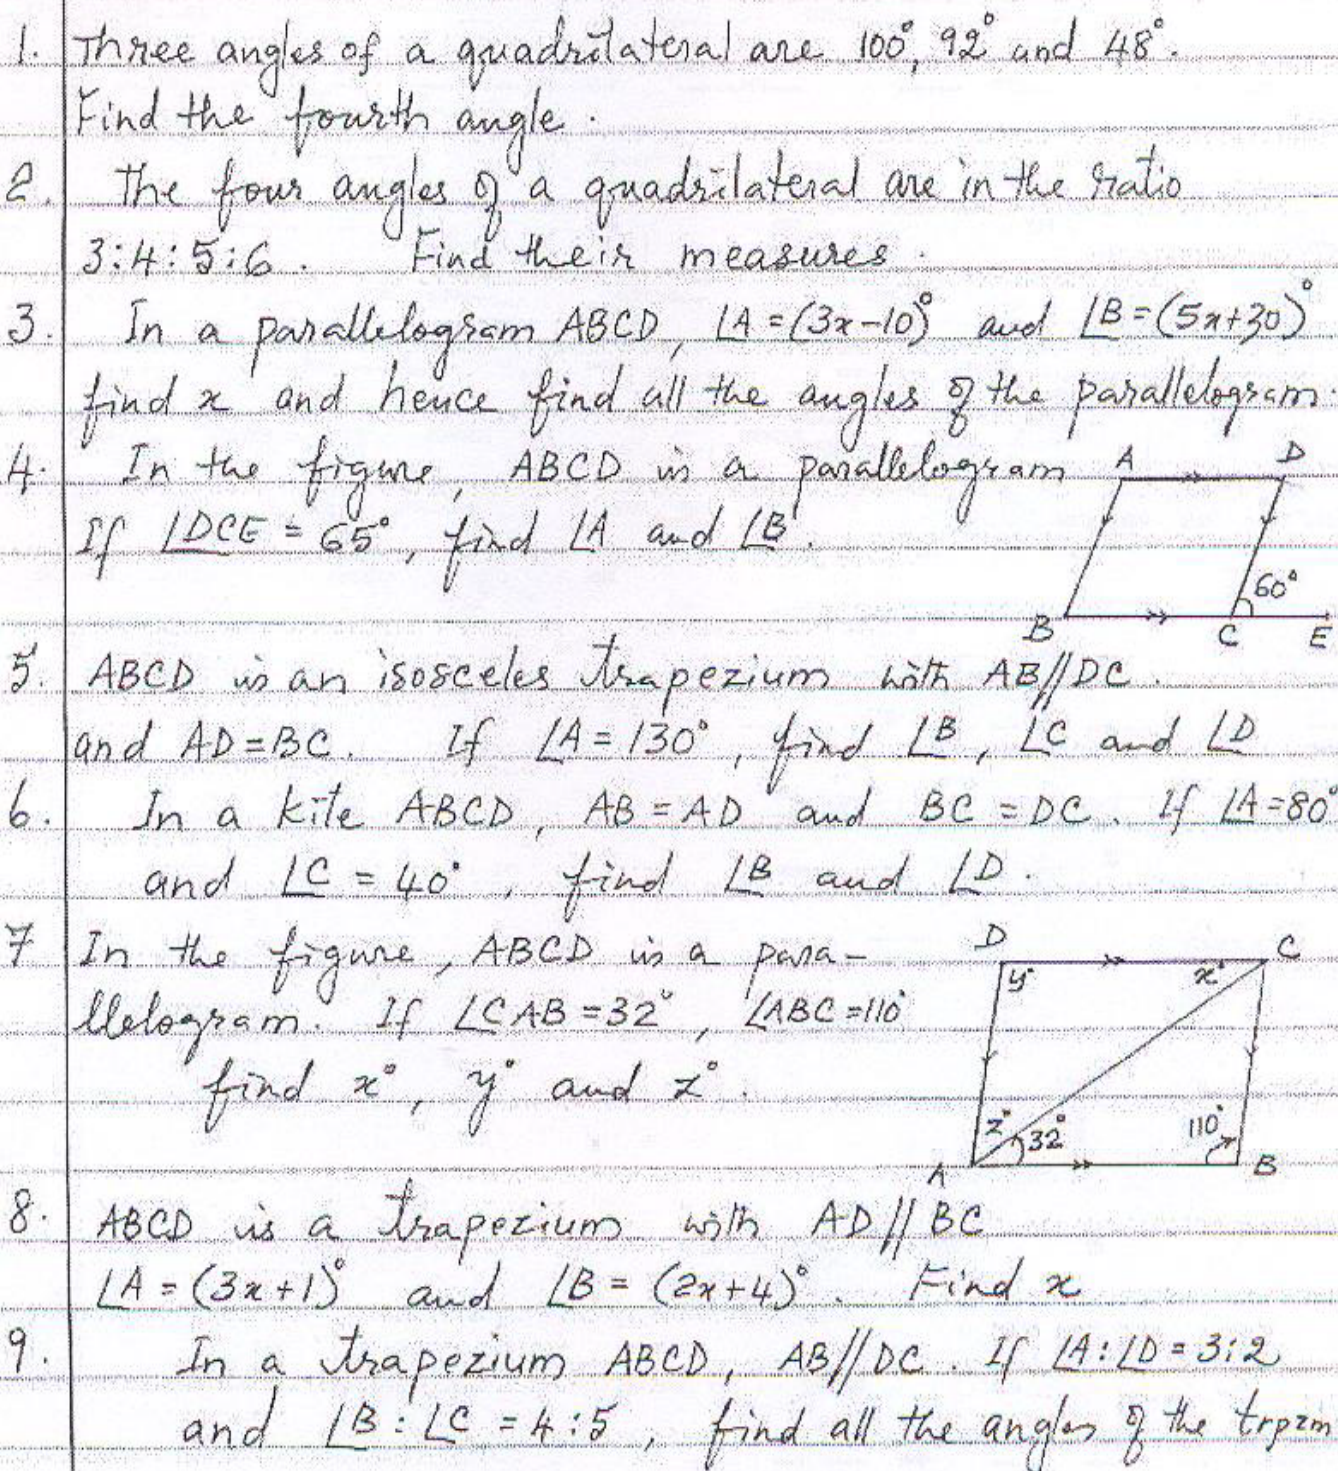 1. Three angles of a quadrilateral are 100°, 92° and 48°.
Find the fourth angle.
2. The four angles of a quadrilateral are in the ratio
3:4:5:6. Find their measures.
3. In a parallelogram ABCD, ∠A = (3x-10)° and ∠B = (5x+30)°
find x and hence find all the angles of the parallelogram.
4. In the figure, ABCD is a parallelogram
If ∠DCE = 65°, find ∠A and ∠B.
A D
60°
B C E
5. ABCD is an isosceles trapezium with AB//DC.
and AD=BC. If ∠A = 130°, find ∠B, ∠C and ∠D
6. In a kite ABCD, AB = AD and BC = DC. If ∠A=80°
and ∠C = 40°, find ∠B and ∠D.
7 In the figure, ABCD is a para-
llelogram. If ∠CAB = 32°, ∠ABC = 110°
find x°, y° and z°.
D C
y° x°
z° 32° 110°
A B
8. ABCD is a trapezium with AD // BC
∠A = (3x+1)° and ∠B = (2x+4)°. Find x
9. In a trapezium ABCD, AB//DC. If ∠A:∠D = 3:2
and ∠B:∠C = 4:5, find all the angles of the trpzm